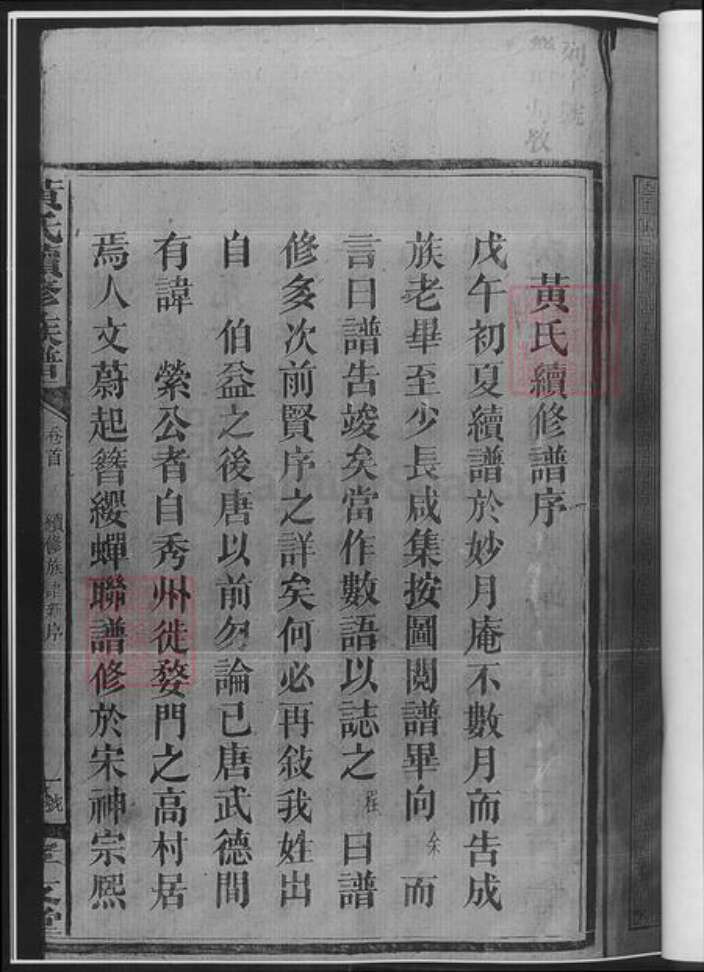 黃氏續修譜序
戊午初夏續譜於妙月庵不數月而告成
族老畢至少長咸集按圖閱譜畢向余而
言曰譜告竣矣當作數語以誌之 曰譜
修多次前賢序之詳矣何必再敍我姓出
自 伯益之後唐以前勿論已唐武德間
有諱 縈公者自秀州徙婺門之高村居
焉人文蔚起簪纓蟬聯譜修於宋神宗熈
黃氏續修族譜
卷首
續修族譜新序
一
文堂